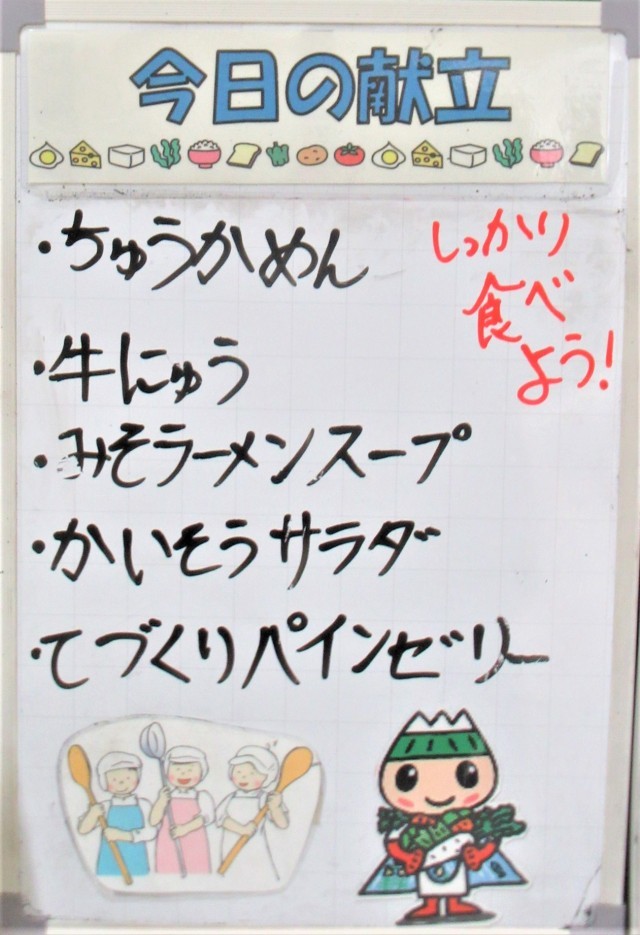 今日の献立
・ちゅうかめん
しっかり
食べ
よう！
・牛にゅう
・みそラーメンスープ
・かいそうサラダ
・てづくりパインゼリー